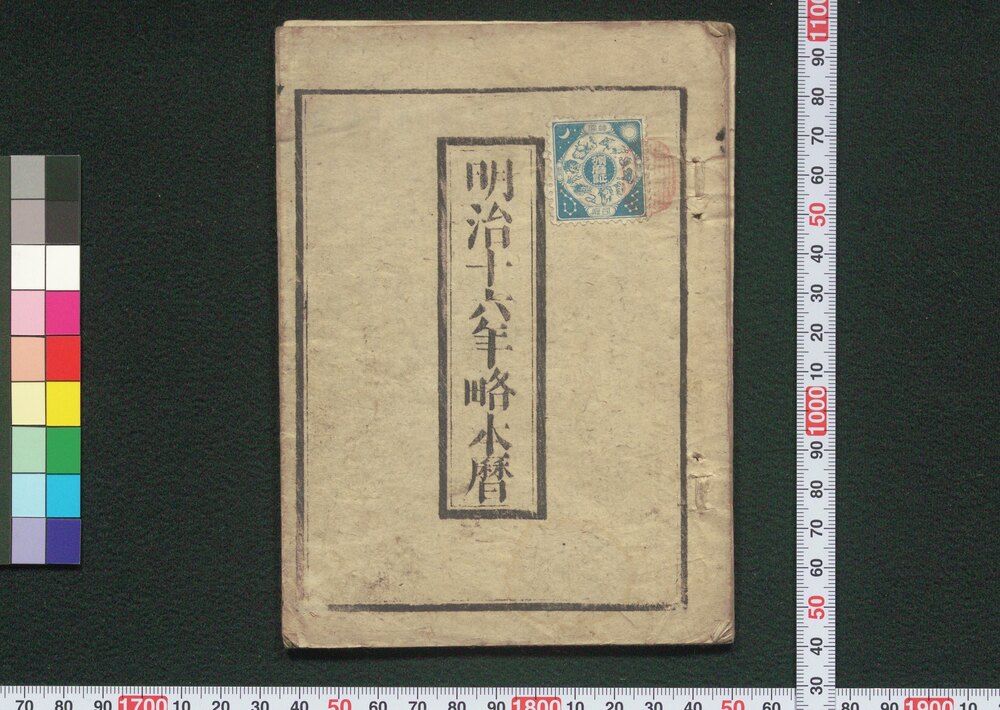 明治十六年略本暦
1100 90 80 70 60 50 40 30 20 10 1000 90 80 70 60 50 40 30
70 80 90 1700 10 20 30 40 50 60 70 80 90 1800 10 20 30 40 50 60 70 80 90 1900 10